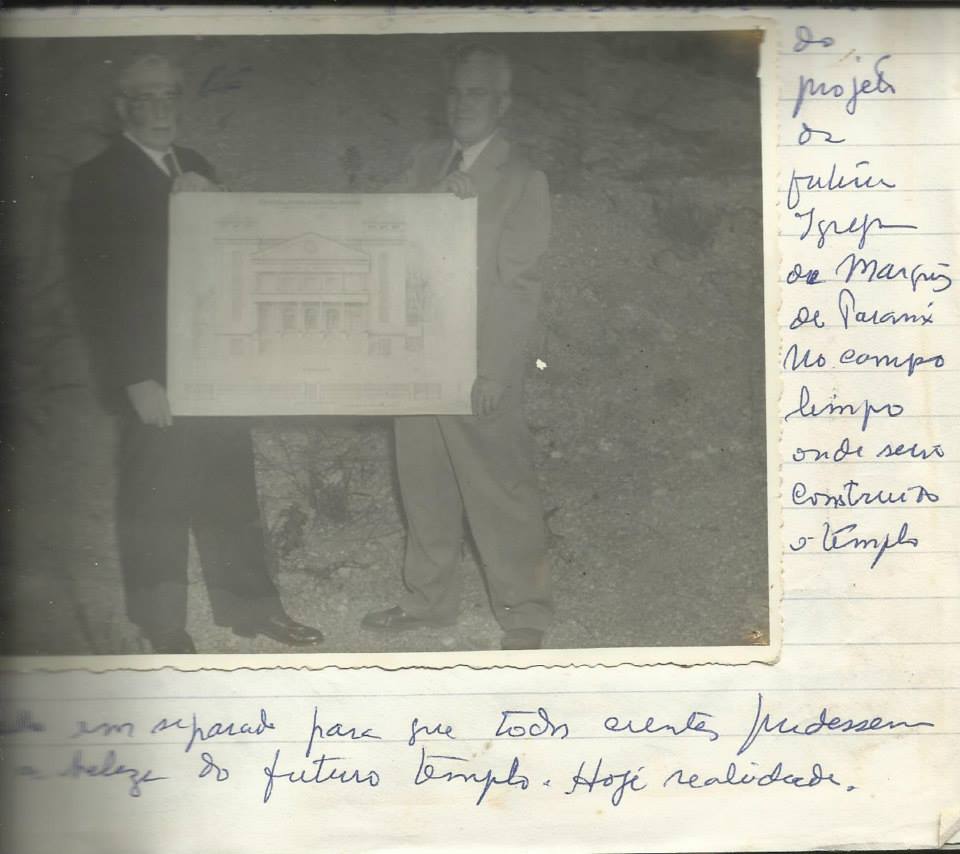 do
projeto
da
futura
Igreja
da Marquês
de Paraná
No campo
limpo
onde será
construido
o templo
em separado para que todos crentes pudessem
a beleza do futuro templo. Hoje realidade.